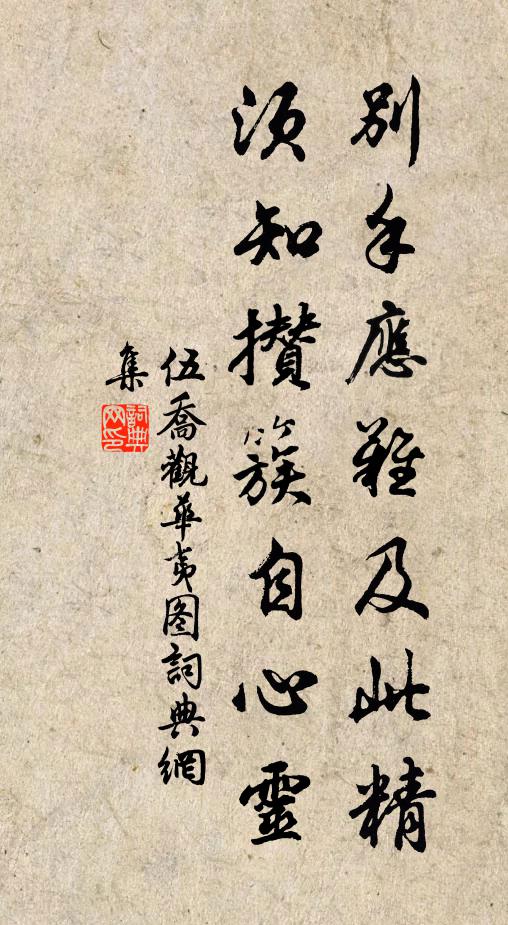 別手應難及此精
須知攢簇自心靈
伍喬觀華夷图詞典網
集
詞典网印